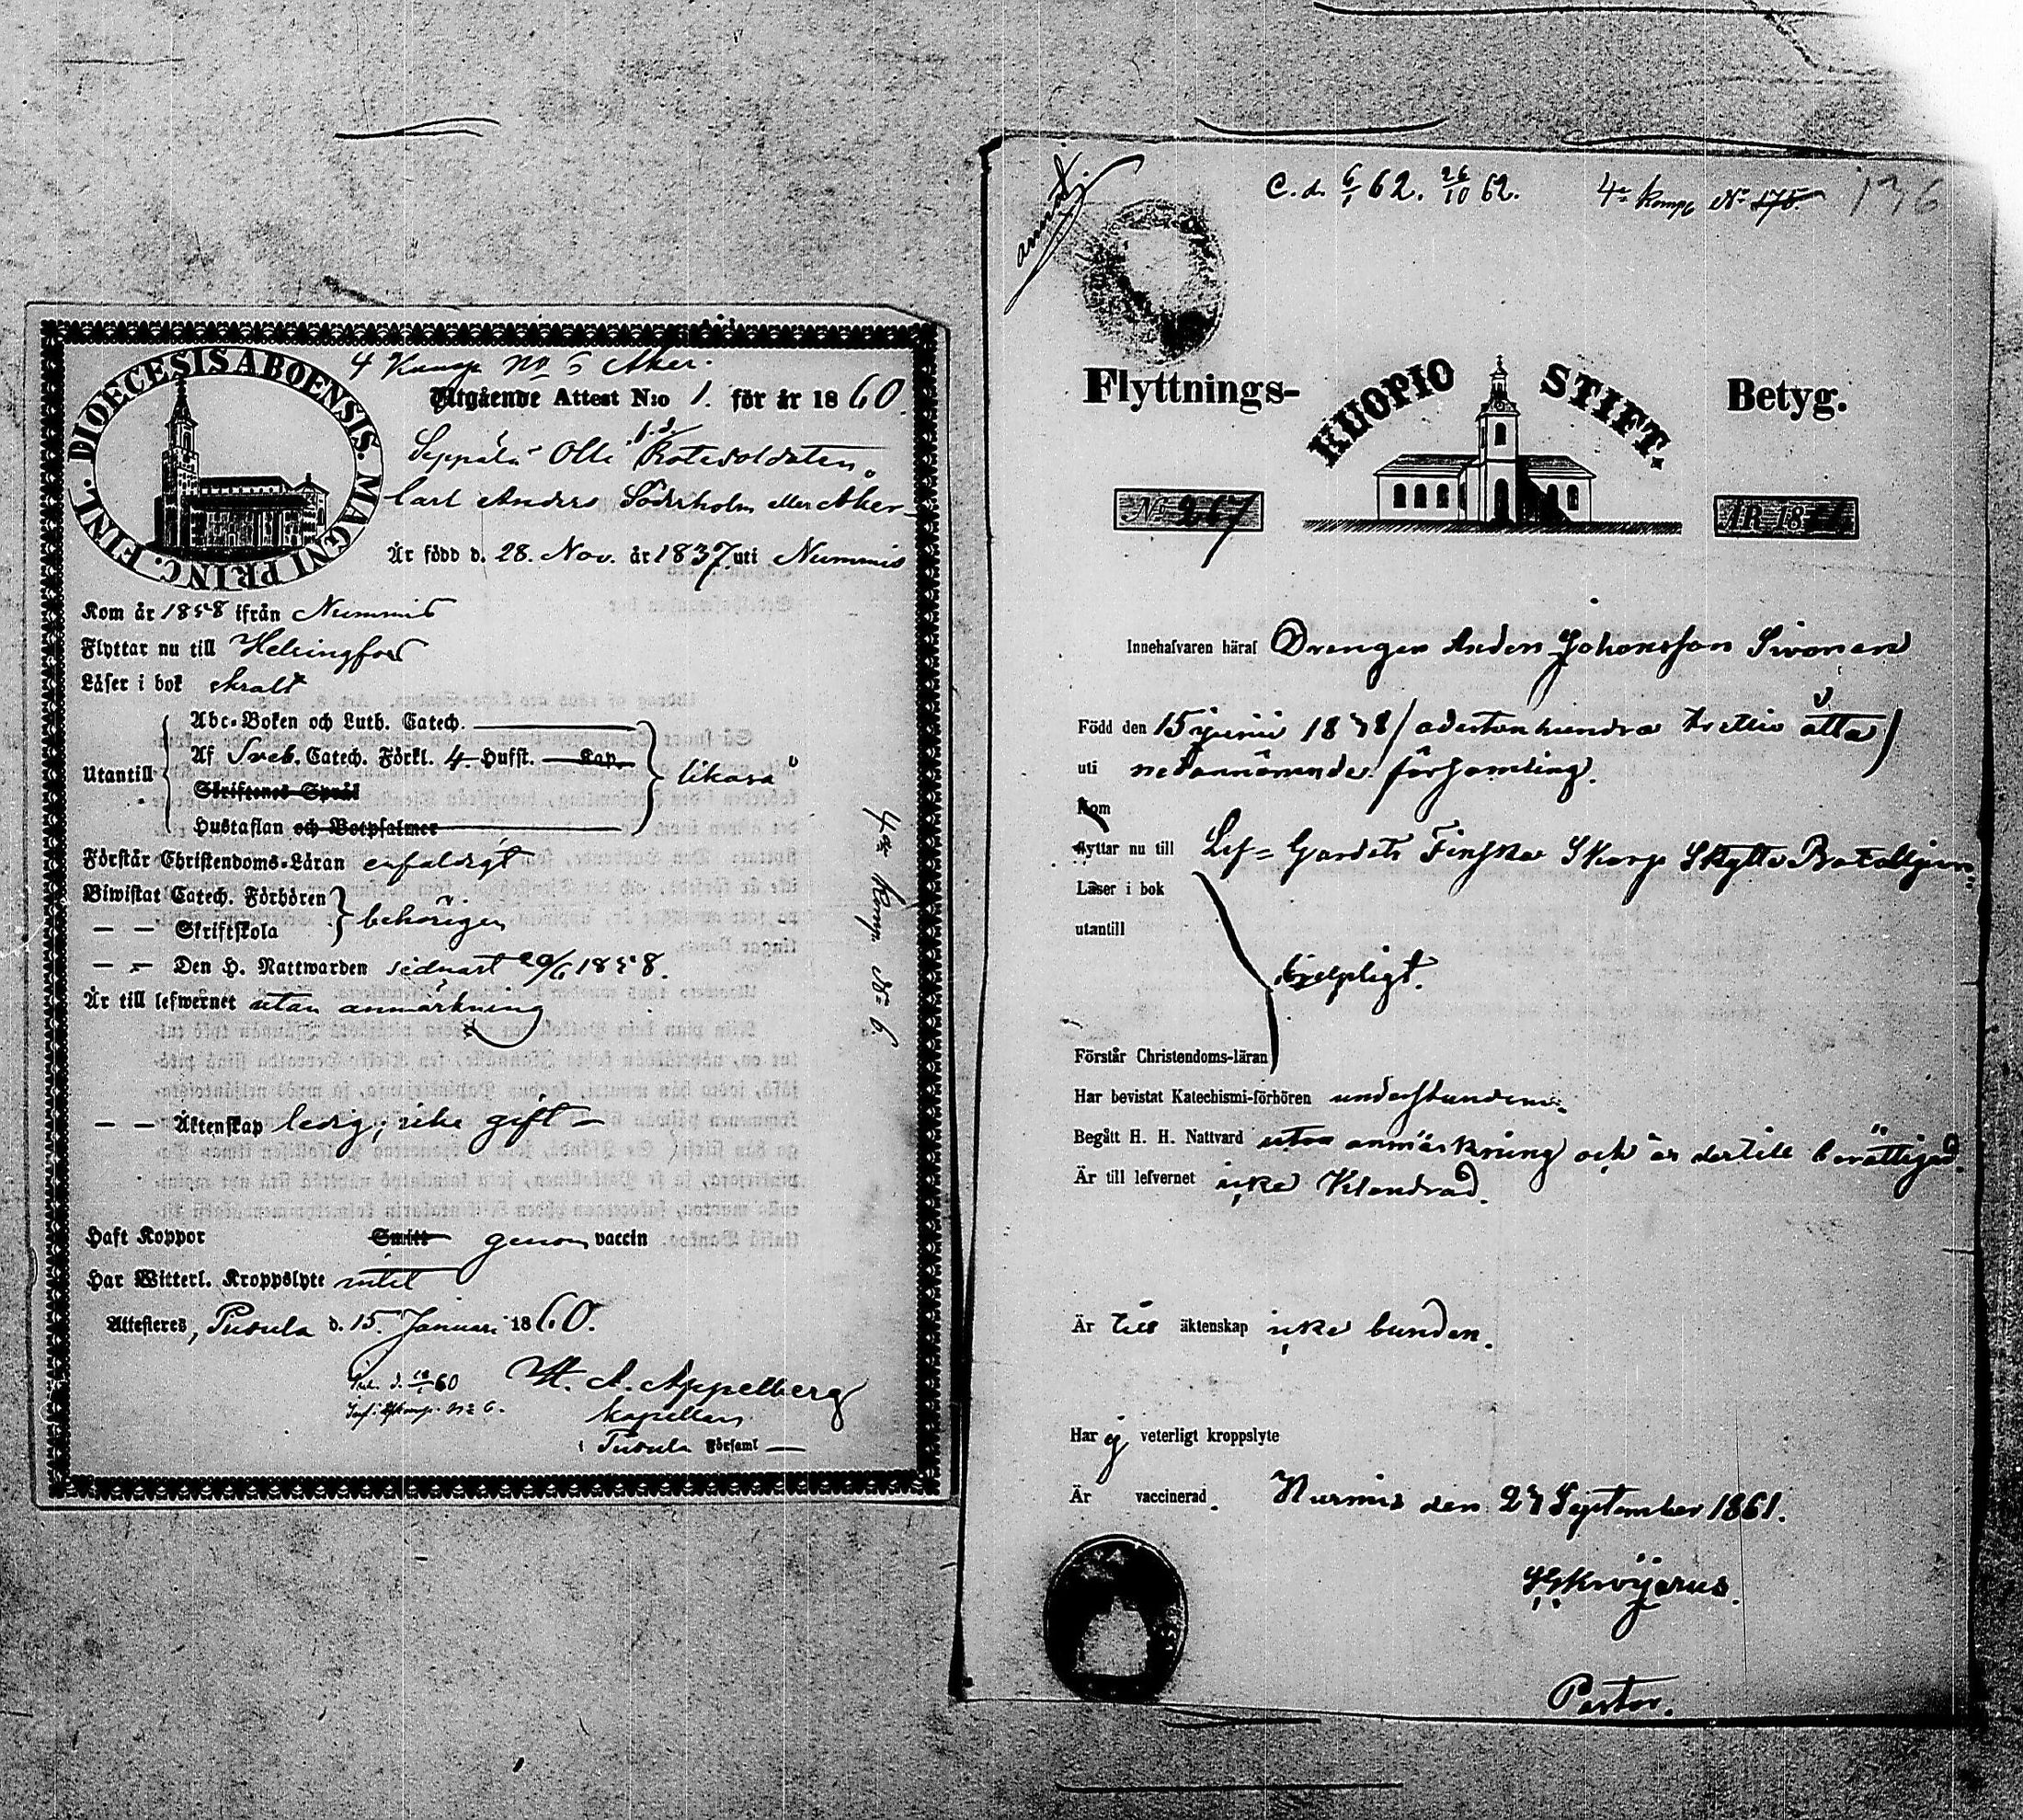 4 Komp No 6 Åker.
DIOECESIS ABOENSIS. MAGNI PRINC. FINL.
Utgående Attest N:o 1. för år 1860.
f.d.
Seppälä Olli Rotesoldaten
Carl Anders Söderholm eller Åker
Är född d. 28. Nov. år 1837. uti Nummis
Kom år 1858 ifrån Nummis
Flyttar nu till Helsingfors
Läser i bok skralt
Utantill
Abc-Boken och Luth. Catech.
Af Sveb. Catech. Förkl. 4 Hufst. Kap.
Skriftenes Språk
Hustaflan och Botpsalmer
likaså
Förstår Christendoms-Läran enfaldigt
Biwistat Catech. Förhören
— — Skriftskola
behörigen
— — Den H. Nattwarden sednast 29/6 1858.
Är till lefwernet utan anmärkning
— — Äktenskap ledig, icke gift
Haft Koppor Smitt genom vaccin
Har Witterl. Kroppslyte intet
Attesteres, Pusula d. 15. Januari 1860.
H. A. Appelberg
Kapellan
i Pusula Församl
4de Komp. No 6.
C. d. 6/1 62. 26/10 62.
4e Komp No 175
136
Flyttnings- KUOPIO STIFT. Betyg.
No 267
ÅR 1861
Innehafvaren häraf Drengen Anders Johansson Sivonen
Född den 15 junii 1838 / adertonhundra trettio åtta /
uti nedannämnde församling.
Kom
flyttar nu till Lif-Gardets Finska Skarp Skytte Bataljon
Läser i bok
utantill
hjelpligt.
Förstår Christendoms-läran
Har bevistat Katechismi-förhören understundom.
Begått H. H. Nattvard utan anmärkning och är dertill berättigad.
Är till lefvernet icke klandrad.
Är till äktenskap icke bunden.
Har ej veterligt kroppslyte
Är vaccinerad. Nurmis den 27 September 1861.
Pastor.